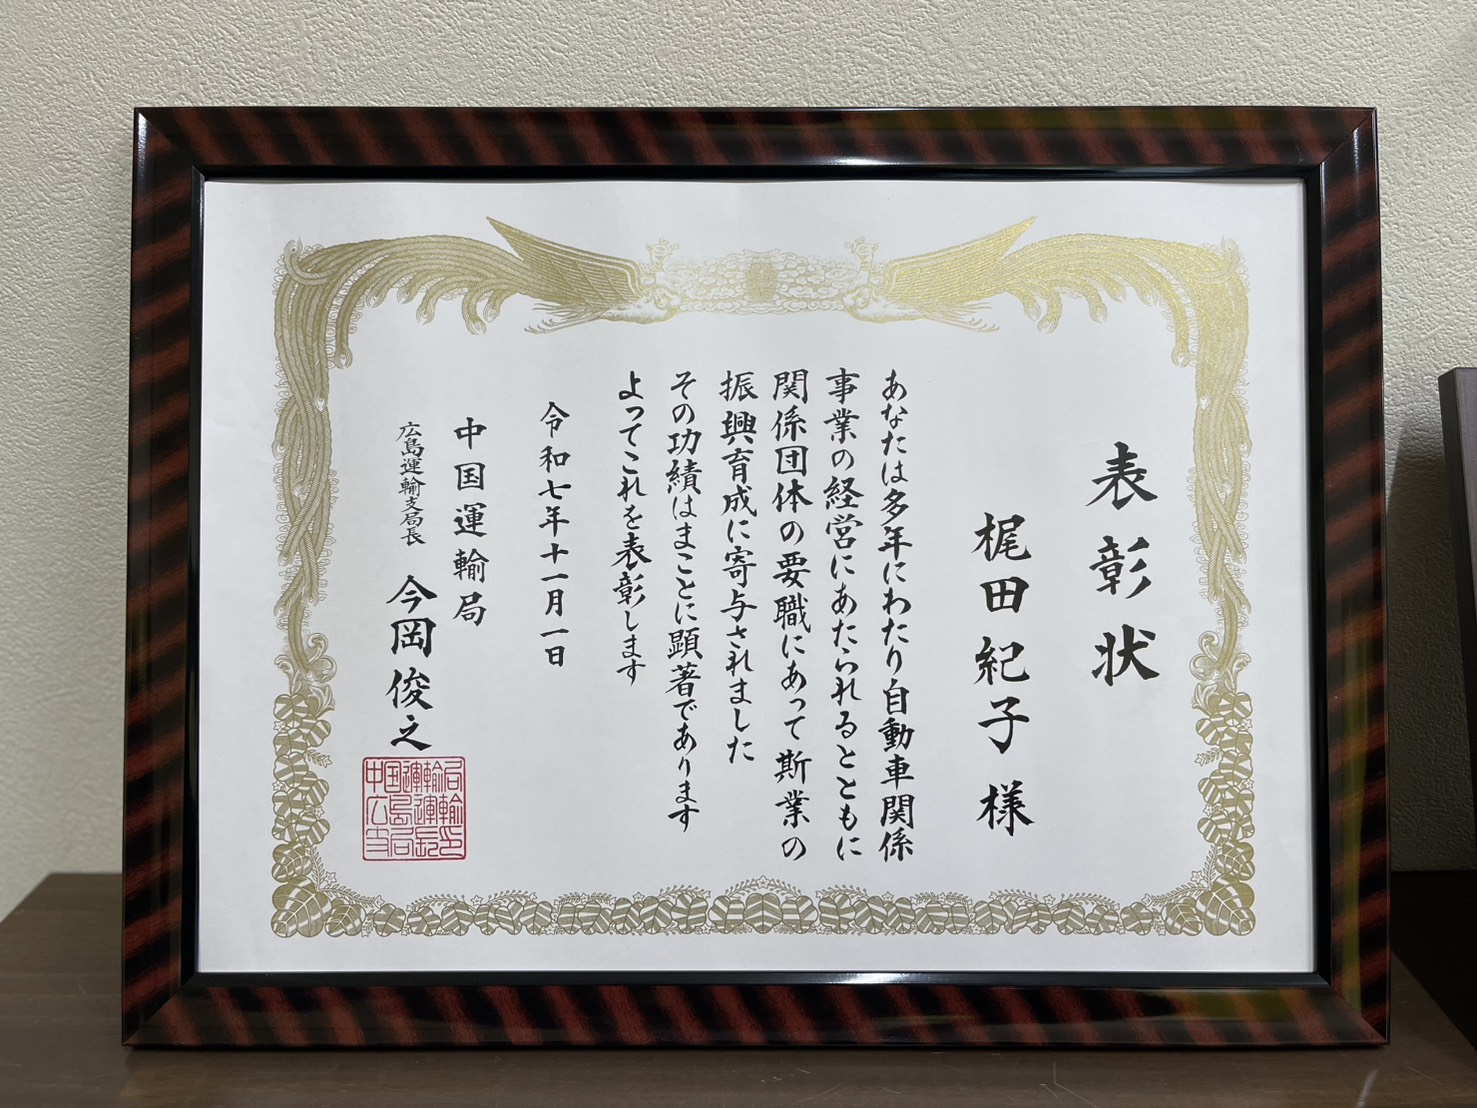 表彰状
梶田紀子様
あなたは多年にわたり自動車関係
事業の経営にあたられるとともに
関係団体の要職にあって斯業の
振興育成に寄与されました
その功績はまことに顕著であります
よってこれを表彰します
令和七年十一月一日
中国運輸局
広島運輸支局長 今岡俊之